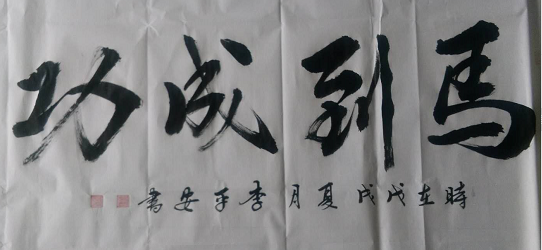 馬到成功
時在戊戌夏月李平安書